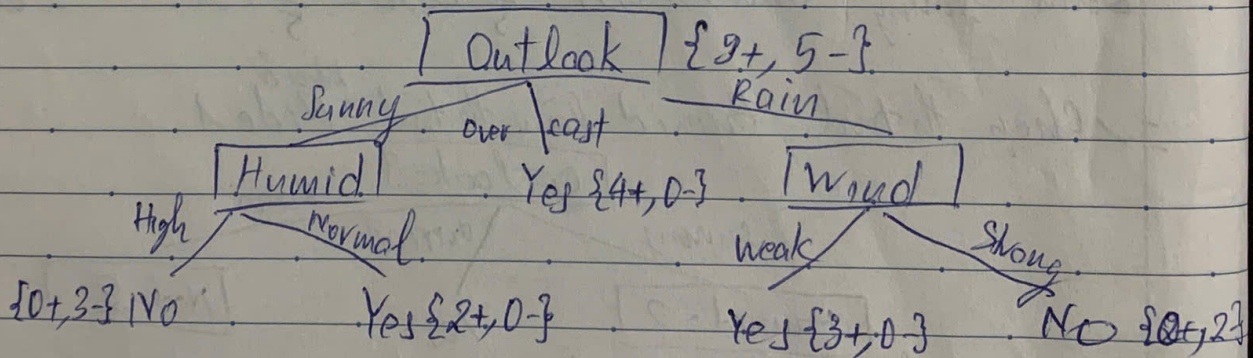 Outlook {9+, 5-}
Sunny
Over cast
Rain
Humid
Yes {4+, 0-}
Wind
High
Normal
Weak
Strong
{0+, 3-} No
Yes {2+, 0-}
Yes {3+, 0-}
No {0+, 2}